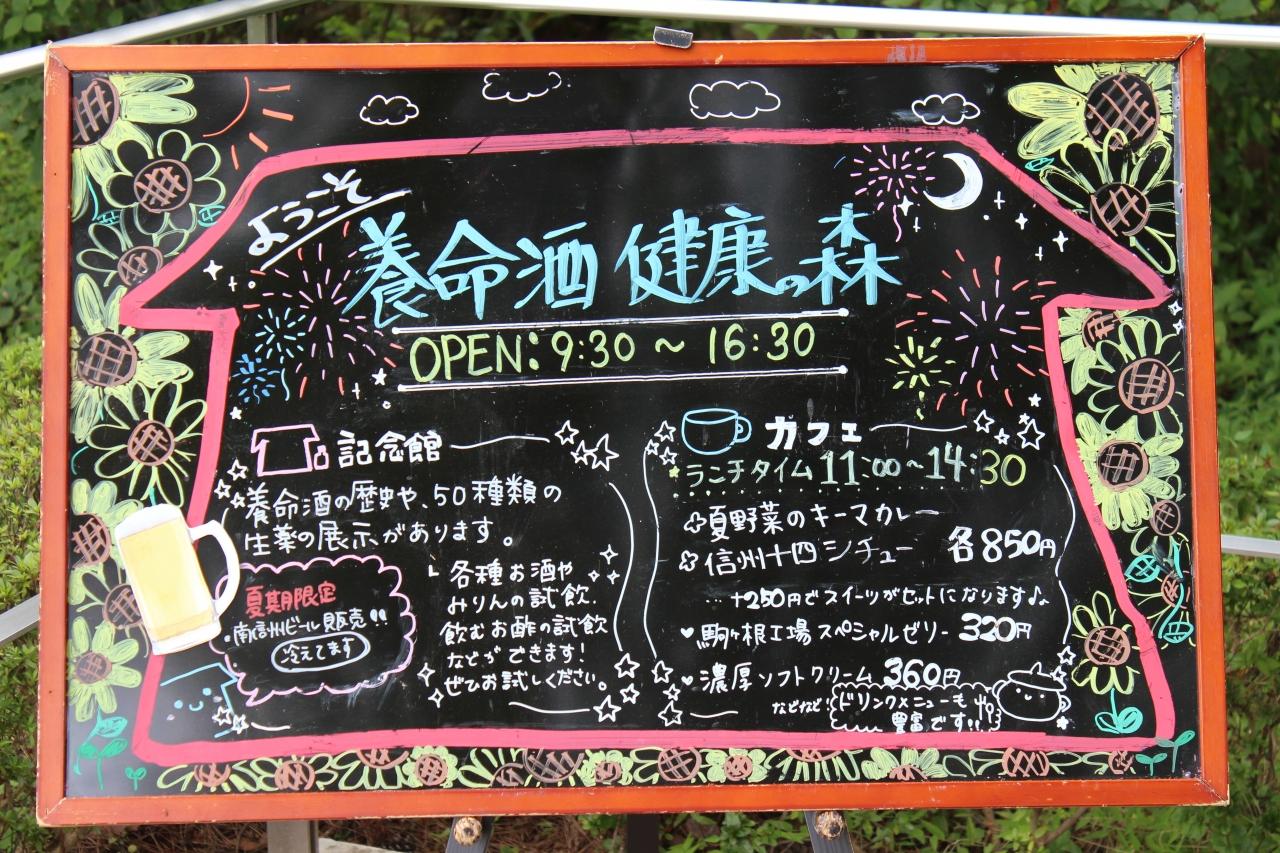 ようこそ
養命酒 健康の森
OPEN:9:30 ~ 16:30
記念館
養命酒の歴史や、50種類の
生薬の展示があります。
夏期限定
南信州ビール販売
冷えてます
各種お酒や
みりんの試飲、
飲むお酢の試飲
などができます!
ぜひお試しください。
カフェ
ランチタイム 11:00~14:30
夏野菜のキーマカレー
信州十四シチュー 各850円
…+250円でスイーツがセットになります♪
♥駒ヶ根工場スペシャルゼリー 320円
♥濃厚ソフトクリーム 360円
などなど!
ドリンクメニューも
豊富です!!